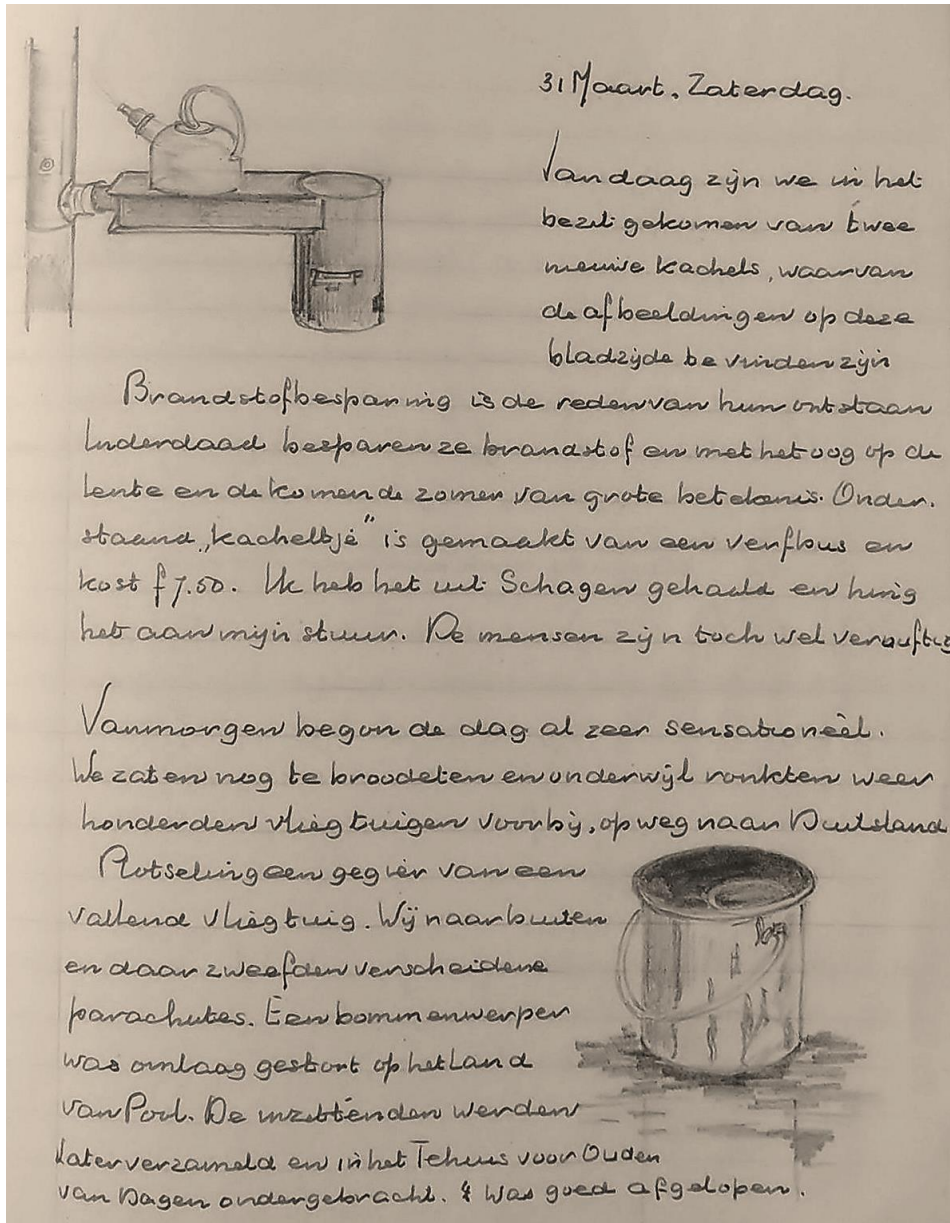 31 Maart. Zaterdag.
Vandaag zijn we in het
bezit gekomen van twee
nieuwe kachels, waarvan
de afbeeldingen op deze
bladzijde te vinden zijn
Brandstofbesparing is de reden van hun ontstaan
Inderdaad besparen ze brandstof en met het oog op de
lente en de komende zomer van grote betekenis. Onder.
staand „kacheltje" is gemaakt van een verfbus en
kost f 7.50. Ik heb het uit Schagen gehaald en hing
het aan mijn stuur. De mensen zijn toch wel vernuftig
Vanmorgen begon de dag al zeer sensationeel.
We zaten nog te broodeten en onderwijl ronkten weer
honderden vliegtuigen voorbij, op weg naar Duitsland
Plotseling een gegier van een
vallend vliegtuig. Wij naar buiten
en daar zweefden verscheidene
parachutes. Een bommenwerper
was omlaag gestort op het Land
van Pool. De inzittenden werden
later verzameld en in het Tehuis voor Ouden
van Dagen ondergebracht. 't Was goed afgelopen.